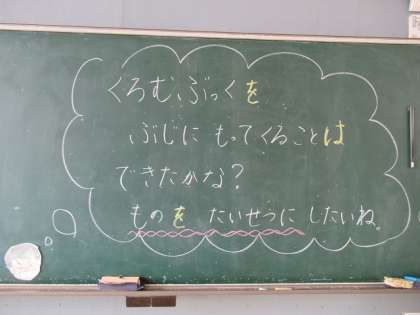 くろむぶっくを
ぶじに もってくることは
できたかな?
ものを たいせつに したいね。